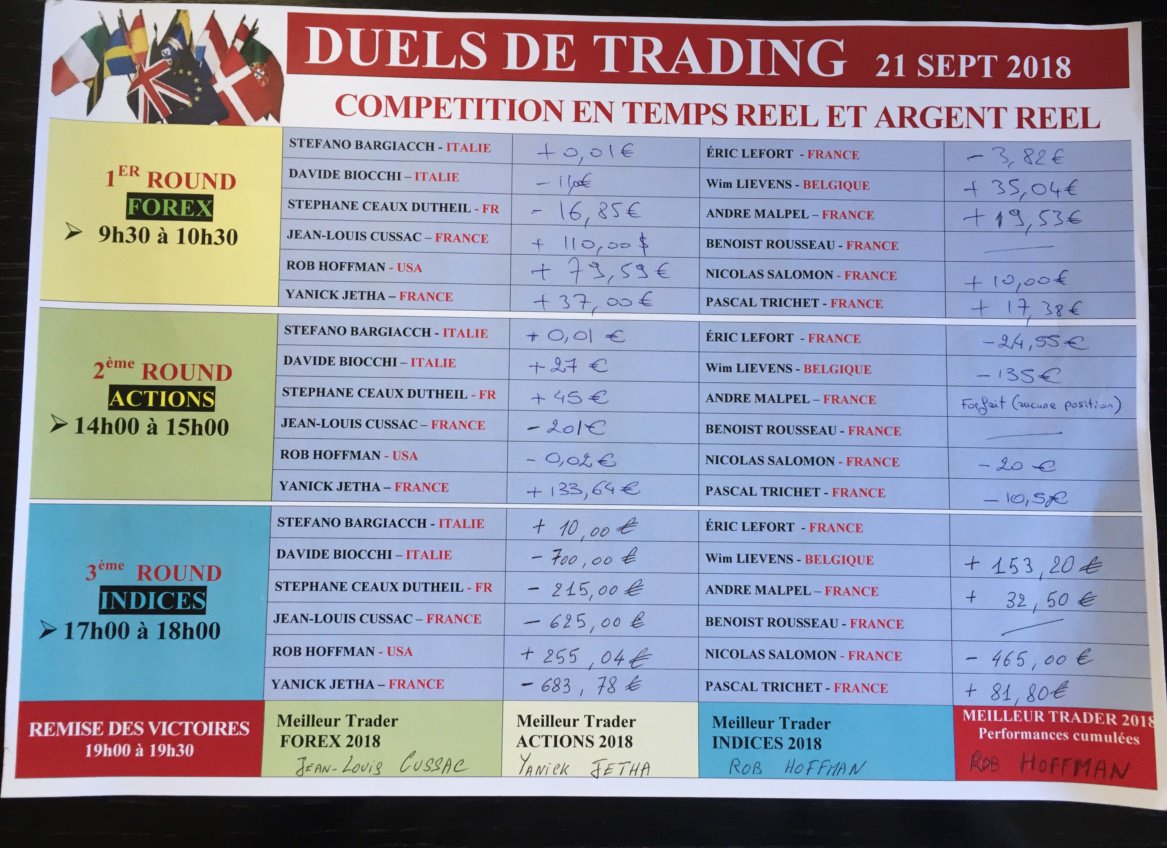 DUELS DE TRADING 21 SEPT 2018
COMPETITION EN TEMPS REEL ET ARGENT REEL
1ER ROUND
FOREX
➢ 9h30 à 10h30
STEFANO BARGIACCH - ITALIE + 0,01 € ÉRIC LEFORT - FRANCE - 3,82 €
DAVIDE BIOCCHI – ITALIE Wim LIEVENS - BELGIQUE + 35,04 €
STEPHANE CEAUX DUTHEIL - FR - 16,85 € ANDRE MALPEL – FRANCE + 19,53 €
JEAN-LOUIS CUSSAC – FRANCE + 110,00 $ BENOIST ROUSSEAU - FRANCE —
ROB HOFFMAN - USA + 79,59 € NICOLAS SALOMON - FRANCE + 10,00 €
YANICK JETHA – FRANCE + 37,00 € PASCAL TRICHET - FRANCE + 17,38 €
2ème ROUND
ACTIONS
➢ 14h00 à 15h00
STEFANO BARGIACCH - ITALIE + 0,01 € ÉRIC LEFORT - FRANCE - 24,55 €
DAVIDE BIOCCHI – ITALIE + 27 € Wim LIEVENS - BELGIQUE - 135 €
STEPHANE CEAUX DUTHEIL - FR + 45 € ANDRE MALPEL – FRANCE Forfait (aucune position)
JEAN-LOUIS CUSSAC – FRANCE - 201 € BENOIST ROUSSEAU - FRANCE —
ROB HOFFMAN - USA - 0,02 € NICOLAS SALOMON - FRANCE - 20 €
YANICK JETHA – FRANCE + 133,64 € PASCAL TRICHET - FRANCE - 10,5 €
3ème ROUND
INDICES
➢ 17h00 à 18h00
STEFANO BARGIACCH - ITALIE + 10,00 € ÉRIC LEFORT - FRANCE
DAVIDE BIOCCHI – ITALIE - 700,00 € Wim LIEVENS - BELGIQUE + 153,20 €
STEPHANE CEAUX DUTHEIL - FR - 215,00 € ANDRE MALPEL – FRANCE + 32,50 €
JEAN-LOUIS CUSSAC – FRANCE - 625,00 € BENOIST ROUSSEAU - FRANCE —
ROB HOFFMAN - USA + 255,04 € NICOLAS SALOMON - FRANCE - 465,00 €
YANICK JETHA – FRANCE - 683,78 € PASCAL TRICHET - FRANCE + 81,80 €
REMISE DES VICTOIRES
19h00 à 19h30
Meilleur Trader
FOREX 2018
JEAN-LOUIS CUSSAC
Meilleur Trader
ACTIONS 2018
YANICK JETHA
Meilleur Trader
INDICES 2018
ROB HOFFMAN
MEILLEUR TRADER 2018
Performances cumulées
ROB HOFFMAN